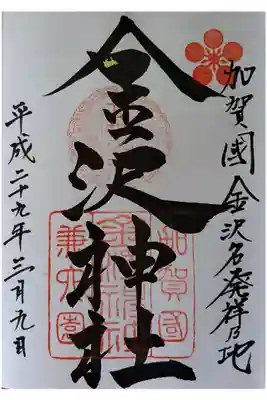 加賀國金沢名発祥乃地
金沢神社
加賀國
金沢神社
兼六園
平成二十九年三月九日